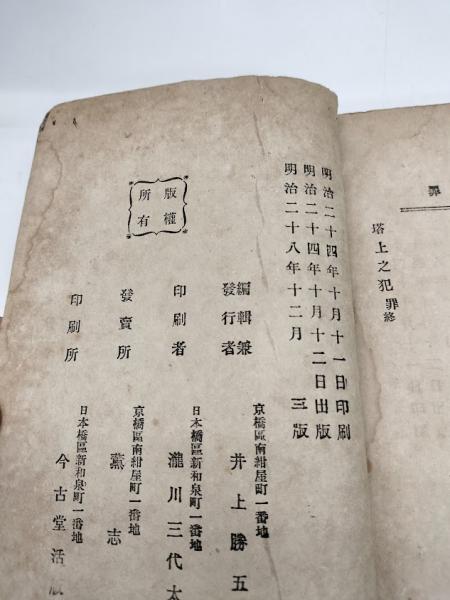 罪
塔上之犯罪終
明治二十四年十月十一日印刷
明治二十四年十月十二日出版
明治二十八年十二月三版
版權
所有
編輯兼
發行者
京橋區南紺屋町一番地
井上勝五
印刷者
日本橋區新和泉町一番地
瀧川三代太
發賣所
京橋區南紺屋町一番地
薫志
印刷所
日本橋區新和泉町一番地
今古堂活版